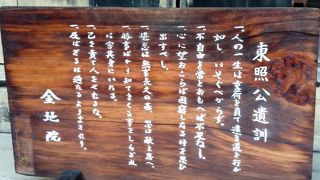 東照公遺訓
一、人の一生は重荷を負て遠き道を行が
如し、いそぐべからず。
一、不自由を常とおもへば不足なし。
一、心に望おこらば困窮したる時を思ひ
出すべし。
一、堪忍は無事長久の基、怒は敵と思へ。
一、勝事ばかり知てまくる事をしらざれ
ば害其身にいたる。
一、己を責て人をせむるな。
一、及ばざるは過たるよりまされり。
金地院